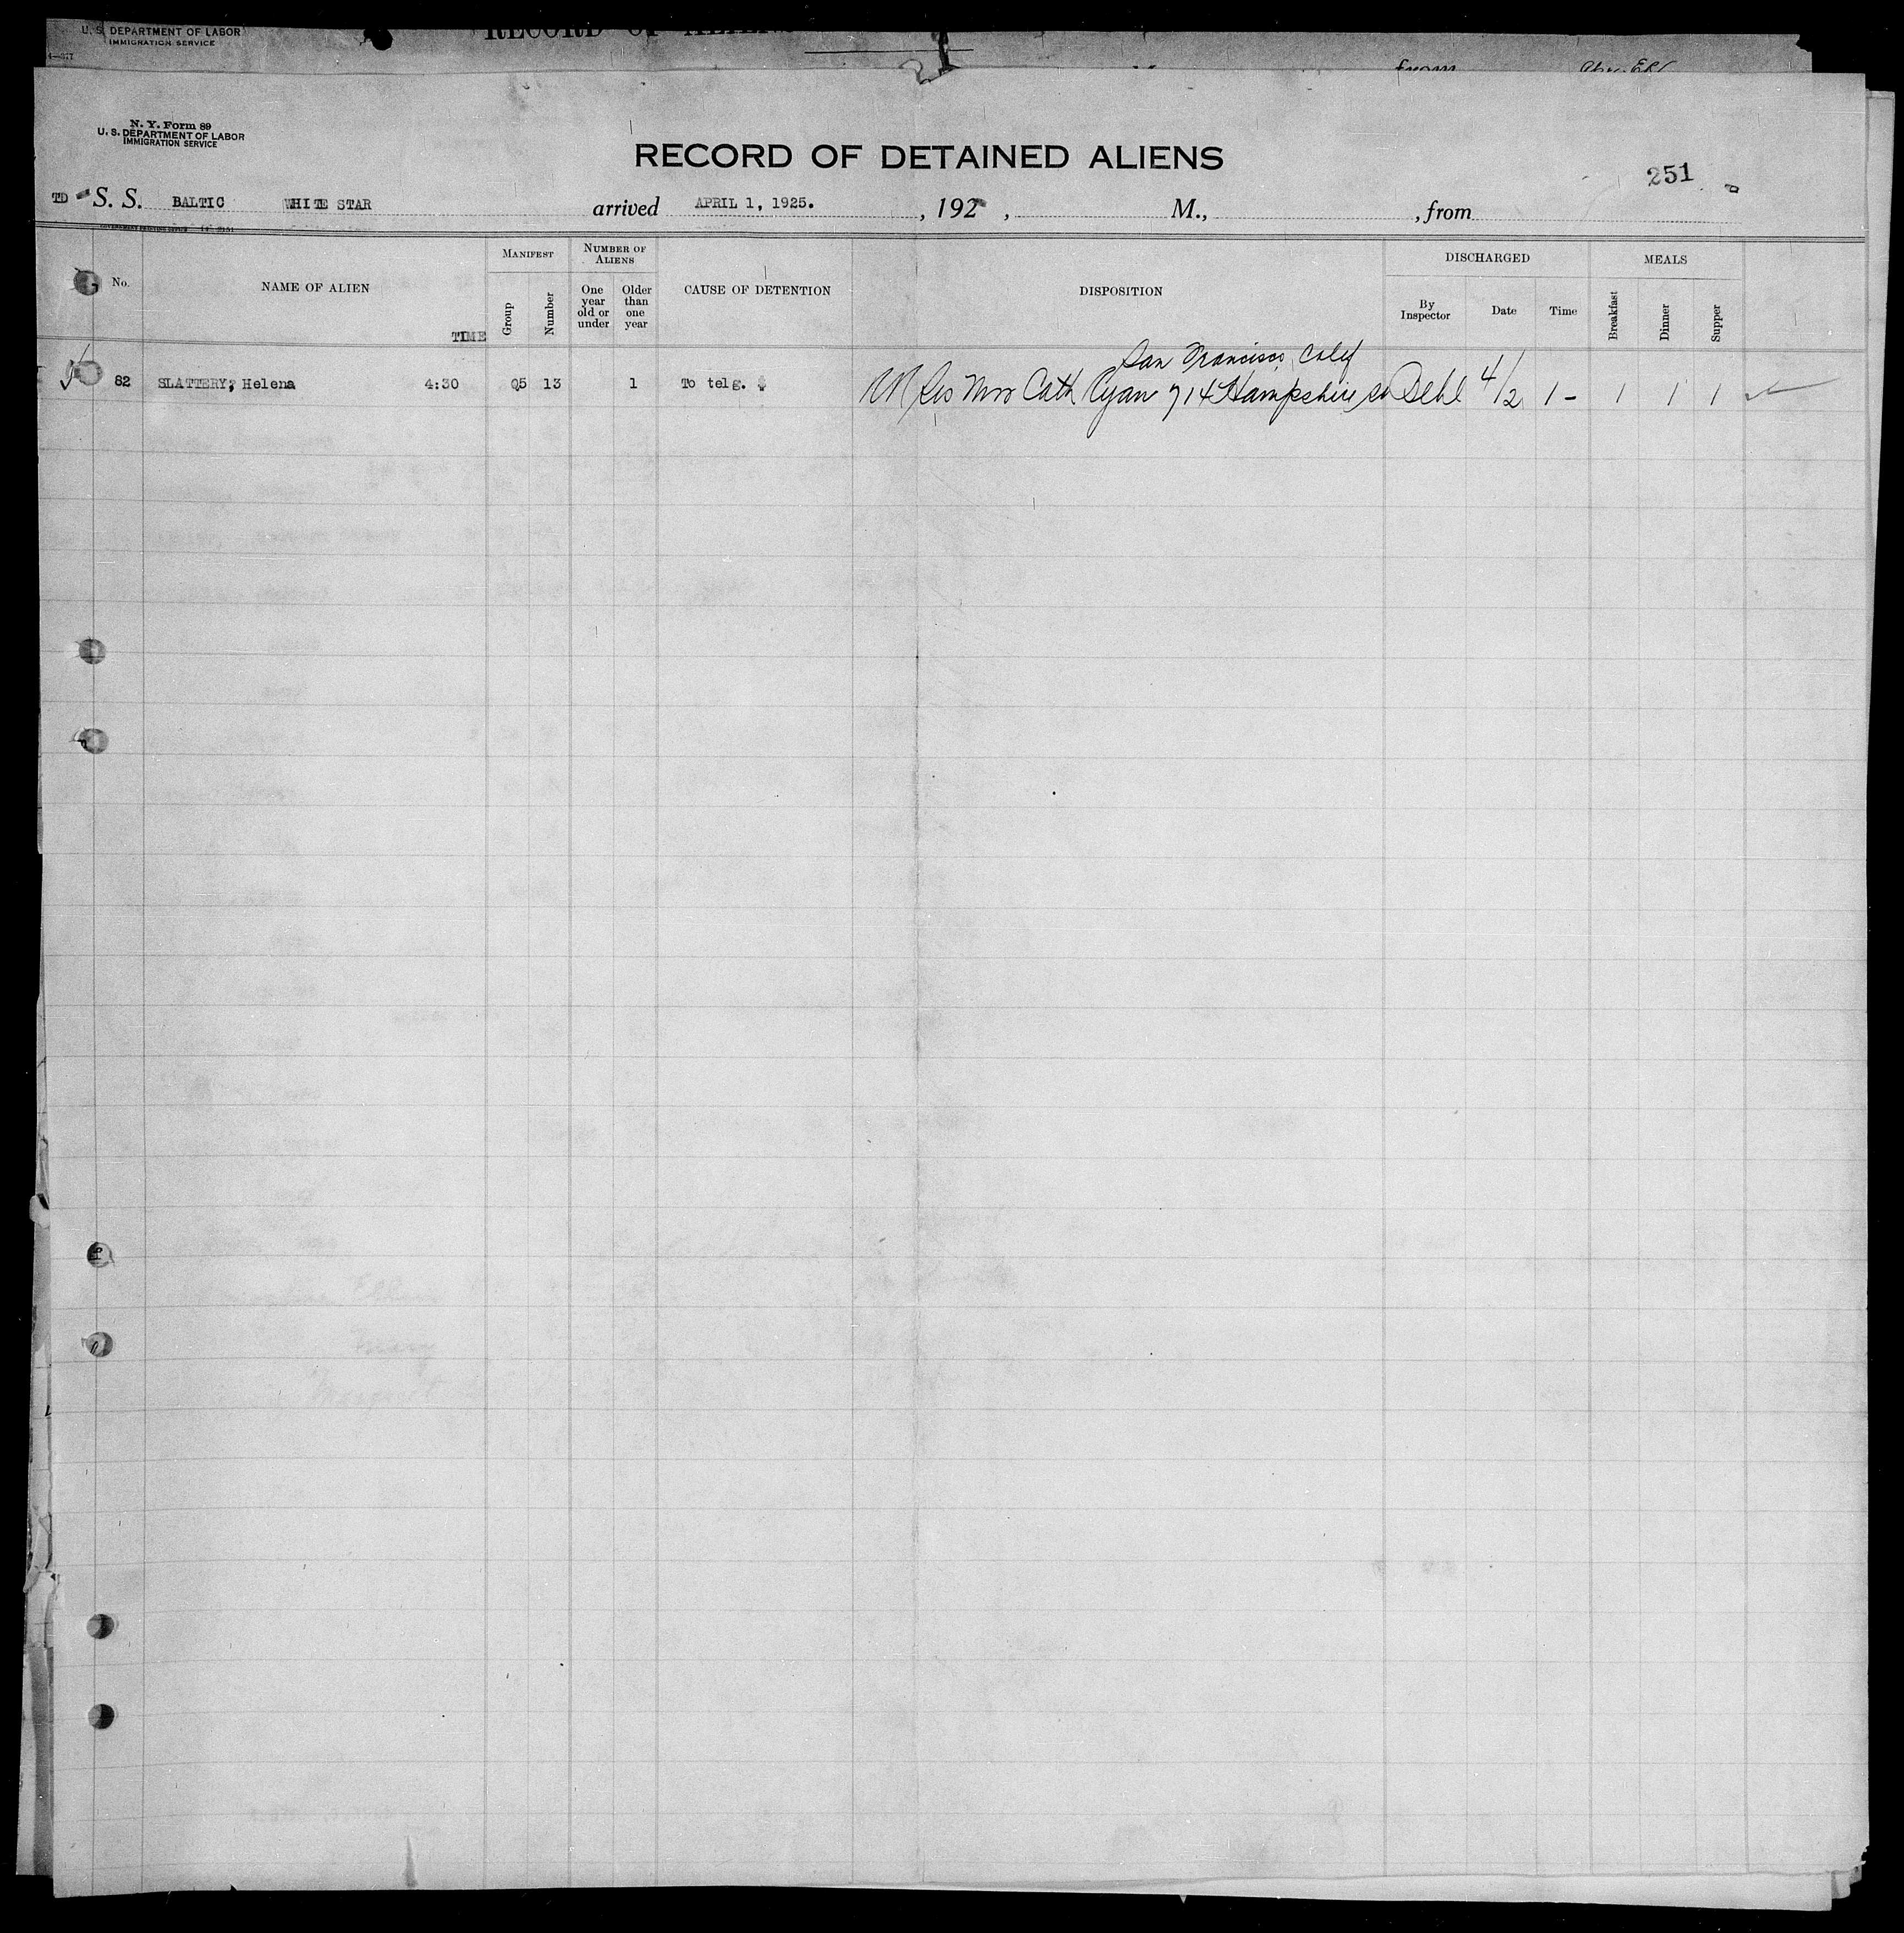 U. S. DEPARTMENT OF LABOR
IMMIGRATION SERVICE
RECORD OF
from
N. Y. Form 89
U. S. DEPARTMENT OF LABOR
IMMIGRATION SERVICE
RECORD OF DETAINED ALIENS
251
TD S. S. BALTIC WHITE STAR arrived APRIL 1, 1925. , 192 , M., , from
MANIFEST NUMBER OF ALIENS DISCHARGED MEALS
No. NAME OF ALIEN TIME Group Number One year old or under Older than one year CAUSE OF DETENTION DISPOSITION By Inspector Date Time Breakfast Dinner Supper
San Francisco, Calif
82 SLATTERY, Helena 4:30 Q5 13 1 To telg. $ sis Mrs Cath Ryan 714 Hampshire St 4/2 1 - 1 1 1